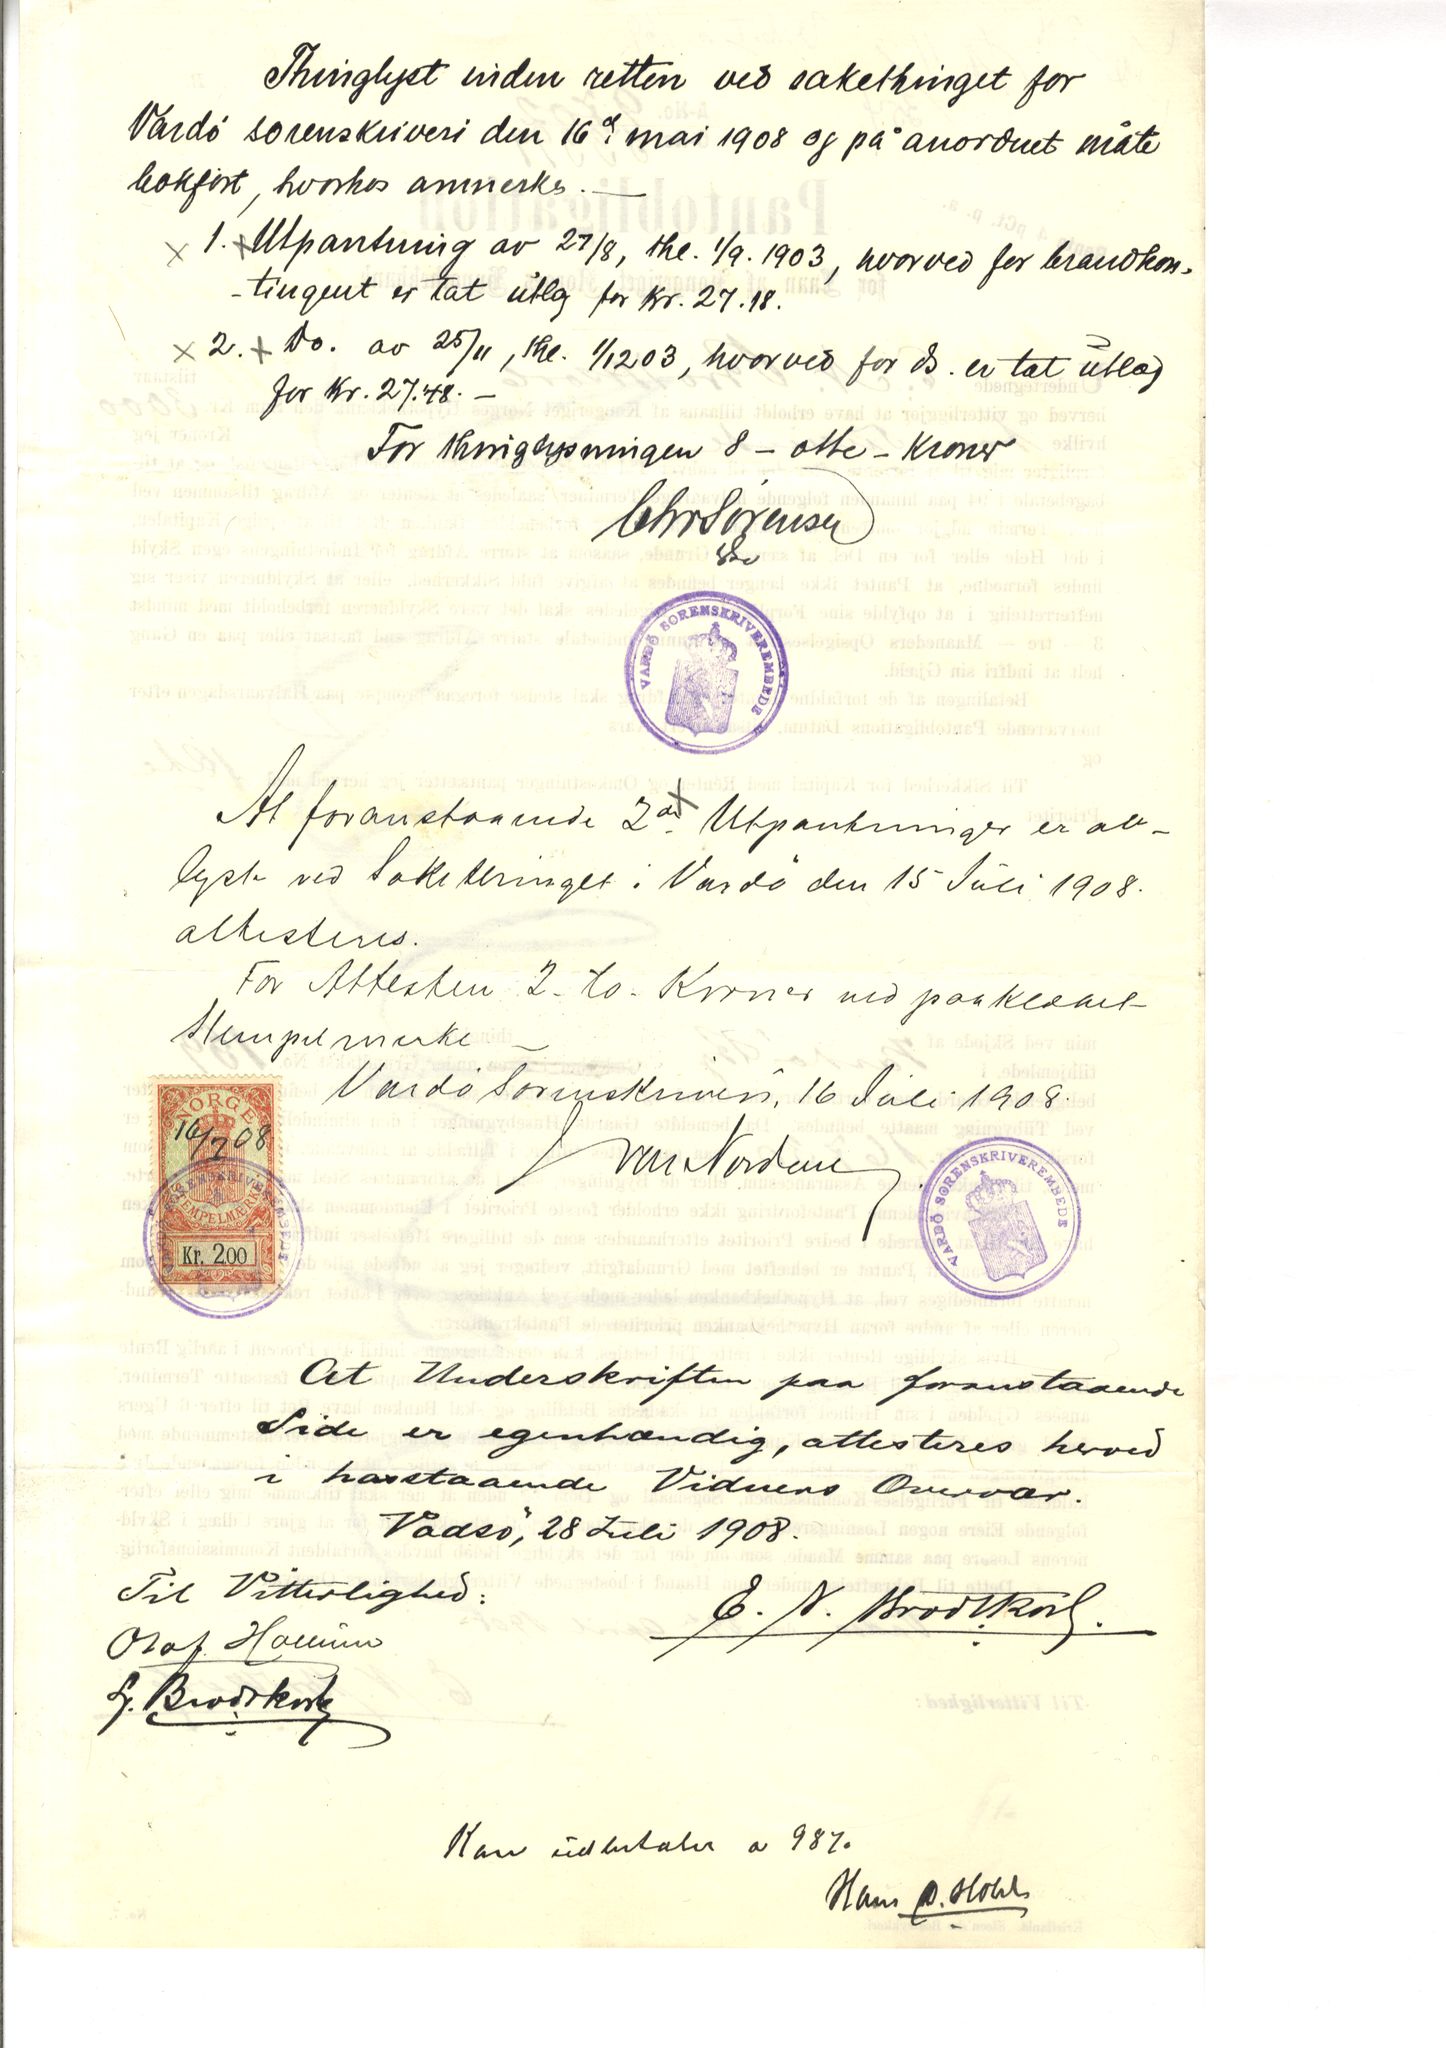 Thinglyst inden retten ved sakethinget for
Vardö sorenskriveri den 16de mai 1908 og på anordnet måte
bokført, hvorhos anmerkes. —
1. Utpantning av 27/8, thl. 1/9. 1903, hvorved for brandkon-
-tingent er tat utlæg for Kr. 27.18.
2. Do. av 25/11, thl. 1/12 03, hvorved for do. er tat utlæg
for Kr. 27.48. —
For thinglysningen 8 – otte – Kroner
Chr Sørensen
VARDÖ SORENSKRIVEREMBEDE
At foranstaaende 2de Utpantninger er av-
lyst ved Saketthinget i Vardö den 15 Juli 1908.
attesteres.
For Attesten 2 - to - Kroner ved paaklæbet
Stempelmerke —
Vardö Sorenskriveri, 16 Juli 1908.
van Norden
NORGE
16/7 08
STEMPELMÆRKE
Kr. 2.00
VARDÖ SORENSKRIVEREMBEDE
VARDÖ SORENSKRIVEREMBEDE
At Underskriften paa foranstaaende
Side er egenhændig, attesteres herved
i hosstaaende Vidners Overvær.
Vadsö, 28 Juli 1908.
Til Vitterlighed:
E. N. Brodtkorb.
Olaf
G. Brodtkorb
Kan udbetales a 98%.
Hans